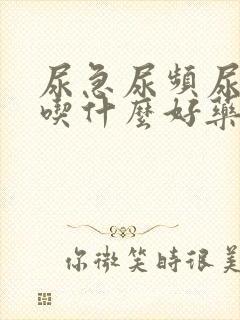 尿急尿頻尿
喫什麼好藥
你微笑時很美